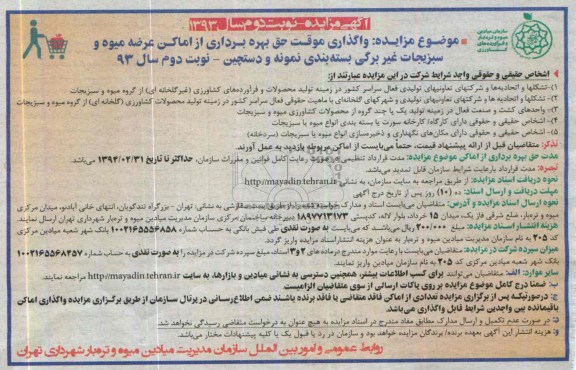 آگهی مزایده-نوبت دوم سال ۱۳۹۳
موضوع مزایده: واگذاری موقت حق بهره برداری از اماکن عرضه میوه و
سبزیجات غیر برگی بسته‌بندی نمونه و دستچین – نوبت دوم سال ۹۳
اشخاص حقیقی و حقوقی واجد شرایط شرکت در این مزایده عبارتند از:
۱)-تشکلها و اتحادیه‌ها و شرکتهای تعاونیهای تولیدی فعال سراسر کشور در زمینه تولید محصولات و فرآورده‌های کشاورزی (غیرگلخانه ای) از گروه میوه و سبزیجات
۲)-تشکلها و اتحادیه‌ها و شرکتهای تعاونیهای تولیدی و شهرکهای گلخانه‌ای با ماهیت حقوقی فعال سراسر کشور در زمینه تولید محصولات کشاورزی (گلخانه ای) از گروه میوه و سبزیجات
۳)- واحدهای کشت و صنعت فعال در زمینه تولید یک یا چند گروه از محصولات کشاورزی میوه و سبزیجات
۴)- اشخاص حقیقی و حقوقی دارای کارگاه/ کارخانه سورت یا بسته بندی انواع میوه یا سبزیجات
۵)- اشخاص حقیقی و حقوقی دارای مکان‌های نگهداری و ذخیره‌سازی انواع میوه یا سبزیجات (سردخانه)
تذکر: متقاضیان قبل از ارائه پیشنهاد قیمت، حتما می‌بایست از اماکن مربوطه بازدید به عمل آورند.
مدت حق بهره برداری از اماکن موضوع مزایده: مدت قرارداد تنظیمی در صورت رعایت کامل قوانین و مقررات سازمان، حداکثر تا تاریخ ۱۳۹۴/۰۲/۳۱ می‌باشد.
تبصره: مدت قرارداد بارعایت شرایط سازمان قابل تمدید می‌باشد.
نحوه دریافت اسناد مزایده: از طریق مراجعه به سایت سازمان، به نشانی http://mayadin.tehran.ir
مهلت دریافت و ارسال اسناد: ده (۱۰) روز پس از تاریخ درج آگهی
نحوه ارسال اسناد مزایده و آدرس: متقاضیان می‌بایست اسناد و مدارک به نشانی: تهران – بزرگراه تندگویان، انتهای خانی آبادنو، میدان مرکزی
میوه و تره‌بار، ضلع شرقی فاز یک، میدان ۱۵ خرداد، بلوار لاله، کدپستی ۱۸۹۷۷۱۳۱۷۳ دبیرخانه ساختمان مرکزی سازمان مدیریت میادین میوه و تره‌بار شهرداری تهران ارسال نمایند.
هزینه انتشار اسناد مزایده: مبلغ ۲۰۰/۰۰۰ ریال می‌باشد که می‌بایست به صورت نقدی طی فیش بانکی به حساب شماره ۱۰۰۲۱۶۵۵۵۶۸۵۸ بانک شهر شعبه میادین مرکزی
کد ۲۰۵ به نام سازمان مدیریت میادین میوه و تره‌بار به عنوان هزینه انتشار اسناد مزایده واریز گردد.
میزان سپرده شرکت در مزایده: متقاضیان می‌بایست با رعایت موارد مندرج درماده های ۲و۳ اسناد، مبلغ سپرده شرکت در مزایده را به صورت نقدی به حساب شماره ۱۰۰۲۱۶۵۵۶۸۲۵۷
بانک شهر شعبه میادین مرکزی کد ۲۰۵ به نام سازمان میادین واریز نمایند.
سایر موارد: الف: متقاضیان می‌توانند برای کسب اطلاعات بیشتر، همچنین دسترسی به نشانی میادین و بازارها، به سایت http://mayadin.tehran.ir مراجعه نمایند.
ب: ضمنا درج کامل موضوع مزایده بر روی پاکات ارسالی از سوی متقاضیان الزامیست.
ج: درصورتیکه پس از برگزاری مزایده تعدادی از اماکن فاقد متقاضی یا فاقد برنده باشند ضمن اطلاع‌رسانی در پرتال سازمان از طریق برگزاری مزایده واگذاری اماکن
باقیمانده بین واجدین شرایط قابل واگذاری می‌باشد.
د: در صورت عدم تکمیل و ارسال مدارک مطابق مفاد مندرج در اسناد مزایده به هیچ عنوان به درخواست متقاضی رسیدگی نخواهد شد.
و: هزینه انتشار این آگهی بعهده برنده/ برندگان مزایده خواهد بود و سازمان در رد یا قبول یک یا کلیه پیشنهادات مختار می‌باشد.
روابط عمومی و امور بین الملل سازمان مدیریت میادین میوه و تره‌بار شهرداری تهران